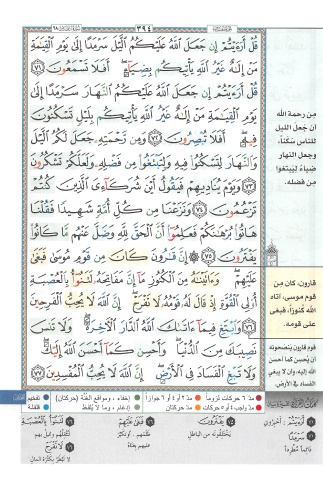 ٣٩٤
قُلْ أَرَءَيْتُمْ إِن جَعَلَ اللَّهُ عَلَيْكُمُ الَّيْلَ سَرْمَدًا إِلَىٰ يَوْمِ الْقِيَٰمَةِ
مَنْ إِلَٰهٌ غَيْرُ اللَّهِ يَأْتِيكُم بِضِيَآءٍ ۖ أَفَلَا تَسْمَعُونَ ٧١
قُلْ أَرَءَيْتُمْ إِن جَعَلَ اللَّهُ عَلَيْكُمُ النَّهَارَ سَرْمَدًا إِلَىٰ
يَوْمِ الْقِيَٰمَةِ مَنْ إِلَٰهٌ غَيْرُ اللَّهِ يَأْتِيكُم بِلَيْلٍ تَسْكُنُونَ
فِيهِ ۖ أَفَلَا تُبْصِرُونَ ٧٢ وَمِن رَّحْمَتِهِ جَعَلَ لَكُمُ الَّيْلَ
وَالنَّهَارَ لِتَسْكُنُوا فِيهِ وَلِتَبْتَغُوا مِن فَضْلِهِ وَلَعَلَّكُمْ تَشْكُرُونَ
٧٣ وَيَوْمَ يُنَادِيهِمْ فَيَقُولُ أَيْنَ شُرَكَآءِىَ الَّذِينَ كُنتُمْ
تَزْعُمُونَ ٧٤ وَنَزَعْنَا مِن كُلِّ أُمَّةٍ شَهِيدًا فَقُلْنَا
هَاتُوا بُرْهَٰنَكُمْ فَعَلِمُوا أَنَّ الْحَقَّ لِلَّهِ وَضَلَّ عَنْهُم مَّا كَانُوا
يَفْتَرُونَ ٧٥ إِنَّ قَٰرُونَ كَانَ مِن قَوْمِ مُوسَىٰ فَبَغَىٰ
عَلَيْهِمْ ۖ وَءَاتَيْنَٰهُ مِنَ الْكُنُوزِ مَآ إِنَّ مَفَاتِحَهُ لَتَنُوأُ بِالْعُصْبَةِ
أُولِى الْقُوَّةِ إِذْ قَالَ لَهُ قَوْمُهُ لَا تَفْرَحْ ۖ إِنَّ اللَّهَ لَا يُحِبُّ الْفَرِحِينَ
٧٦ وَابْتَغِ فِيمَآ ءَاتَىٰكَ اللَّهُ الدَّارَ الْءَاخِرَةَ ۖ وَلَا تَنسَ
نَصِيبَكَ مِنَ الدُّنْيَا ۖ وَأَحْسِن كَمَآ أَحْسَنَ اللَّهُ إِلَيْكَ ۖ
وَلَا تَبْغِ الْفَسَادَ فِى الْأَرْضِ ۖ إِنَّ اللَّهَ لَا يُحِبُّ الْمُفْسِدِينَ ٧٧
من رحمة الله
أن جعل الليل
للناس سكناً،
وجعل النهار
ضياءً ليبتغوا
من فضله.
قارون، كان من
قوم موسى، آتاه
الله كنوزاً، فبغى
على قومه.
قوم قارون ينصحونه
أن يحسن كما أحسن
الله إليه، وأن لا يبغي
الفساد في الأرض.
مدّ ٦ حركات لزوماً
مدّ ٢ أو ٤ أو ٦ جوازاً
إخفاء، ومواقع الغُنّة (حركتان)
تفخيم
مدّ واجب ٤ أو ٥ حركات
مدّ حركتان
إدغام، وما لا يُلفظ
قلقلة